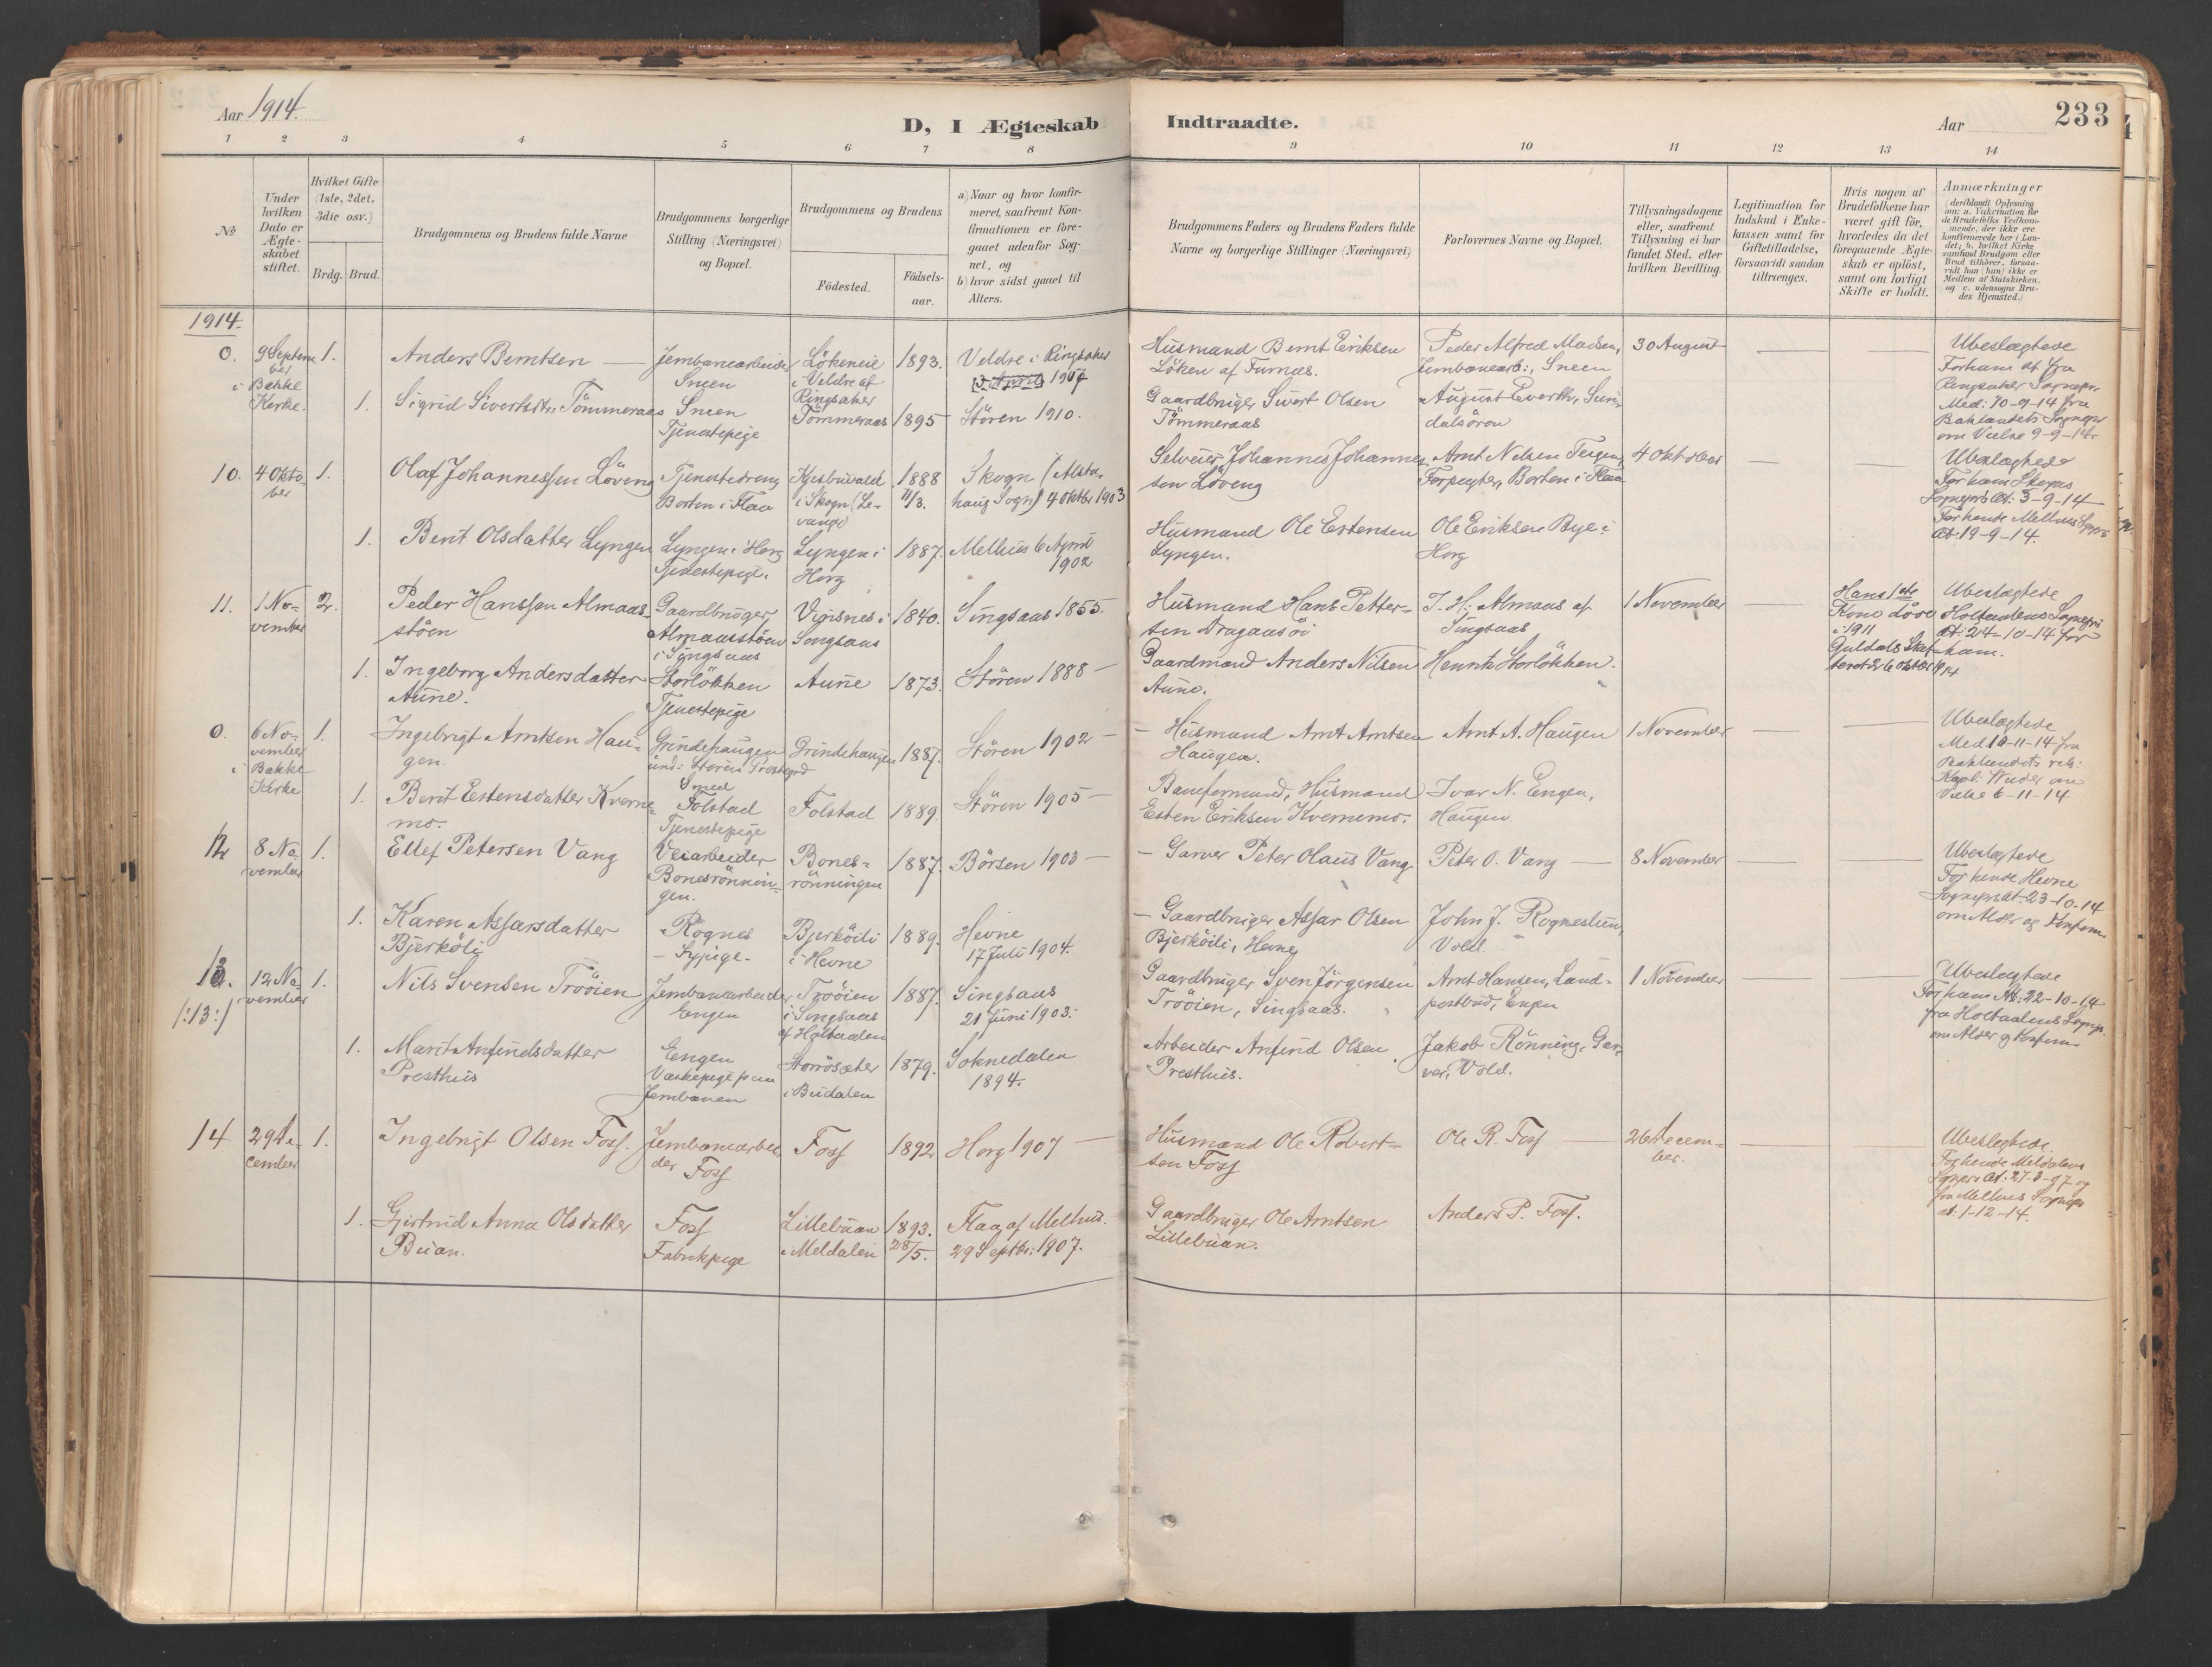 Aar 1914.
D, I Ægteskab Indtraadte.
Aar
233
1 2 3 4 5 6 7 8 9 10 11 12 13 14
No
Under hvilken Dato er Ægteskabet stiftet.
Hvilket Gifte (1ste, 2det, 3die osv.)
Brdg. Brud.
Brudgommens og Brudens fulde Navne
Brudgommens borgerlige Stilling (Næringsvei) og Bopæl.
Brudgommens og Brudens
Födested.
Födselsaar.
a) Naar og hvor konfirmeret, saafremt Konfirmationen er foregaaet udenfor Sognet, og
b) hvor sidst gaaet til Alters.
Brudgommens Faders og Brudens Faders fulde Navne og borgerlige Stillinger (Næringsvei)
Forlovernes Navne og Bopæl.
Tillysningsdagene eller, saafremt Tillysning ei har fundet Sted, efter hvilken Bevilling.
Legitimation for Indskud i Enkekassen samt for Giftetilladelse, forsaavidt saadan tiltrænges.
Hvis nogen af Brudefolkene har været gift för, hvorledes da det foregaaende Ægteskab er oplöst, samt om lovligt Skifte er holdt.
Anmærkninger (deriblandt Oplysning om: a. Vakcination for de Brudefolks Vedkommende, der ikke ere konfirmerede her i Landet; b. hvilket Kirkesamfund Brudgom eller Brud tilhörer, forsaavidt hun (han) ikke er Medlem af Statskirken, og c. udensogns Brudes Hjemsted.)
1914.
0. 9 September i Bakke Kirke. 1. Anders Berntsen — Jernbanearbeider Sneen Lökeneie i Veldre af Ringsaker 1893. Veldre i Ringsaker 1907 Husmand Bernt Eriksen Löken af Furnæs. Peder Alfred Madsen, Jernbanearb:, Sneen 30 August — — Ubeslægtede Forham at fra Ringsaker Sognepr. Med: 10-9-14 fra Baklandets Sognepr om Vielse 9-9-14.
1. Sigrid Sivertsdtr. Tömmeraas Sneen Tjenestepige Tömmeraas 1895 Stören 1910. Gaardbruger Sivert Olsen Tömmeraas August Everth, Sundalsören
10. 4 Oktober 1. Olaf Johannessen Löveng Tjenestedreng Borten i Flaa i Skogn (Levanger) 1888 11/3. Skogn (Alstahaug Sogn) 4 Oktbr 1903 Selveier Johannes Johannessen Löveng Arnt Nilsen Forpagter, Borten i Flaa 4 Oktober — — Ubeslægtede For ham Skogns Sognepr. At: 3-9-14 For hende Melhus Sognepr At: 19-9-14.
1. Berit Olsdatter Lyngen Lyngen i Horg Tjenestepige. Lyngen i Horg 1887. Melhus 6 April 1902 Husmand Ole Estensen Lyngen. Ole Eriksen Bye i Horg
11. 1 November 2. Peder Hanssen Almaasstöen Gaardbruger Almaasstöen i Singsaas Vigisnes i Songsaas 1840. Singsaas 1855. Husmand Hans Pettersen Dragaasöi J. H. Almaas af Singsaas 1 November — Hans 1ste Kone döde i 1911 Guldals Skifteret 26 oktbr 1914 Ubeslægtede Holtaalens Sognepr. At: 24-10-14 for ham.
1. Ingeborg Andersdatter Aune. Storlökken Tjenestepige Aune 1873. Stören 1888 — Gaardmand Anders Nilsen Aune. Henrik Storlökken.
0. 6 November i Bakke Kirke 1. Ingebrigt Arntsen Haugen. Grindehaugen und: Stören Prestegrd Smed Grindehaugen 1887. Stören 1902 — Husmand Arnt Arntsen Haugen. Arnt A. Haugen 1 November — — Ubeslægtede Med 10-11-14 fra Baklandets res: Kapl: om Vielse 6-11-14
1. Berit Estensdatter Kvernemo. Folstad Tjenestepige Folstad 1889. Stören 1905 — Baneformand, Husmand Esten Eriksen Kvernemo. Ivar N. Engen, Haugen.
12 8 November 1. Ellef Petersen Vang Veiarbeider Bonesrönningen. Bonesrönningen 1887. Börsen 1903 — Garver Peter Olaus Vang Peter O. Vang — 8 November — — Ubeslægtede For hende Hevne Sognepr. at 23-10-14 om Alder og Konfirm.
1. Karen Assarsdatter Bjerköli Rognes Sypige. Bjerköili i Hevne 1889. Hevne 17 Juli 1904. Gaardbruger Assar Olsen Bjerköili, Hevne John J. Rogneslun, Vold.
13. /:13:/ 12 November 1. Nils Svensen Trööien Jernbanearbeider Engen Trööien i Singsaas af Holtaalen 1887. Singsaas 21 Juni 1903. Gaardbruger Sven Jörgensen Trööien, Singsaas. Arnt Hansen, Landpostbud, Engen 1 November — — Ubeslægtede For ham At: 22-10-14 fra Holtaalens Sognepr. om Alder og Konfirm.
1. Marit Anfindsdatter Presthus Engen Vaskepige paa Jernbanen Storrösæter i Budalen 1879. Soknedalen 1894. Arbeider Anfind Olsen Presthus. Jakob Rönning, Garver, Vold.
14 29 December 1. Ingebrigt Olsen Foss. Jernbanearbeider Foss Foss 1892 Horg 1907 — Husmand Ole Robertsen Foss Ole R. Foss — 26 December. — Ubeslegtede. For hende Meldalens Sognepr. At: 27-3-97 og fra Melhus Sognepr at: 1-12-14.
1. Gjertrud Anna Olsdatter Buan. Foss Fabrikpige Lillebuan i Meldalen 1893. 28/5. Flaa af Melhus. 29 Septbr: 1907. Gaardbruger Ole Arntsen Lillebuan. Anders P. Foss.